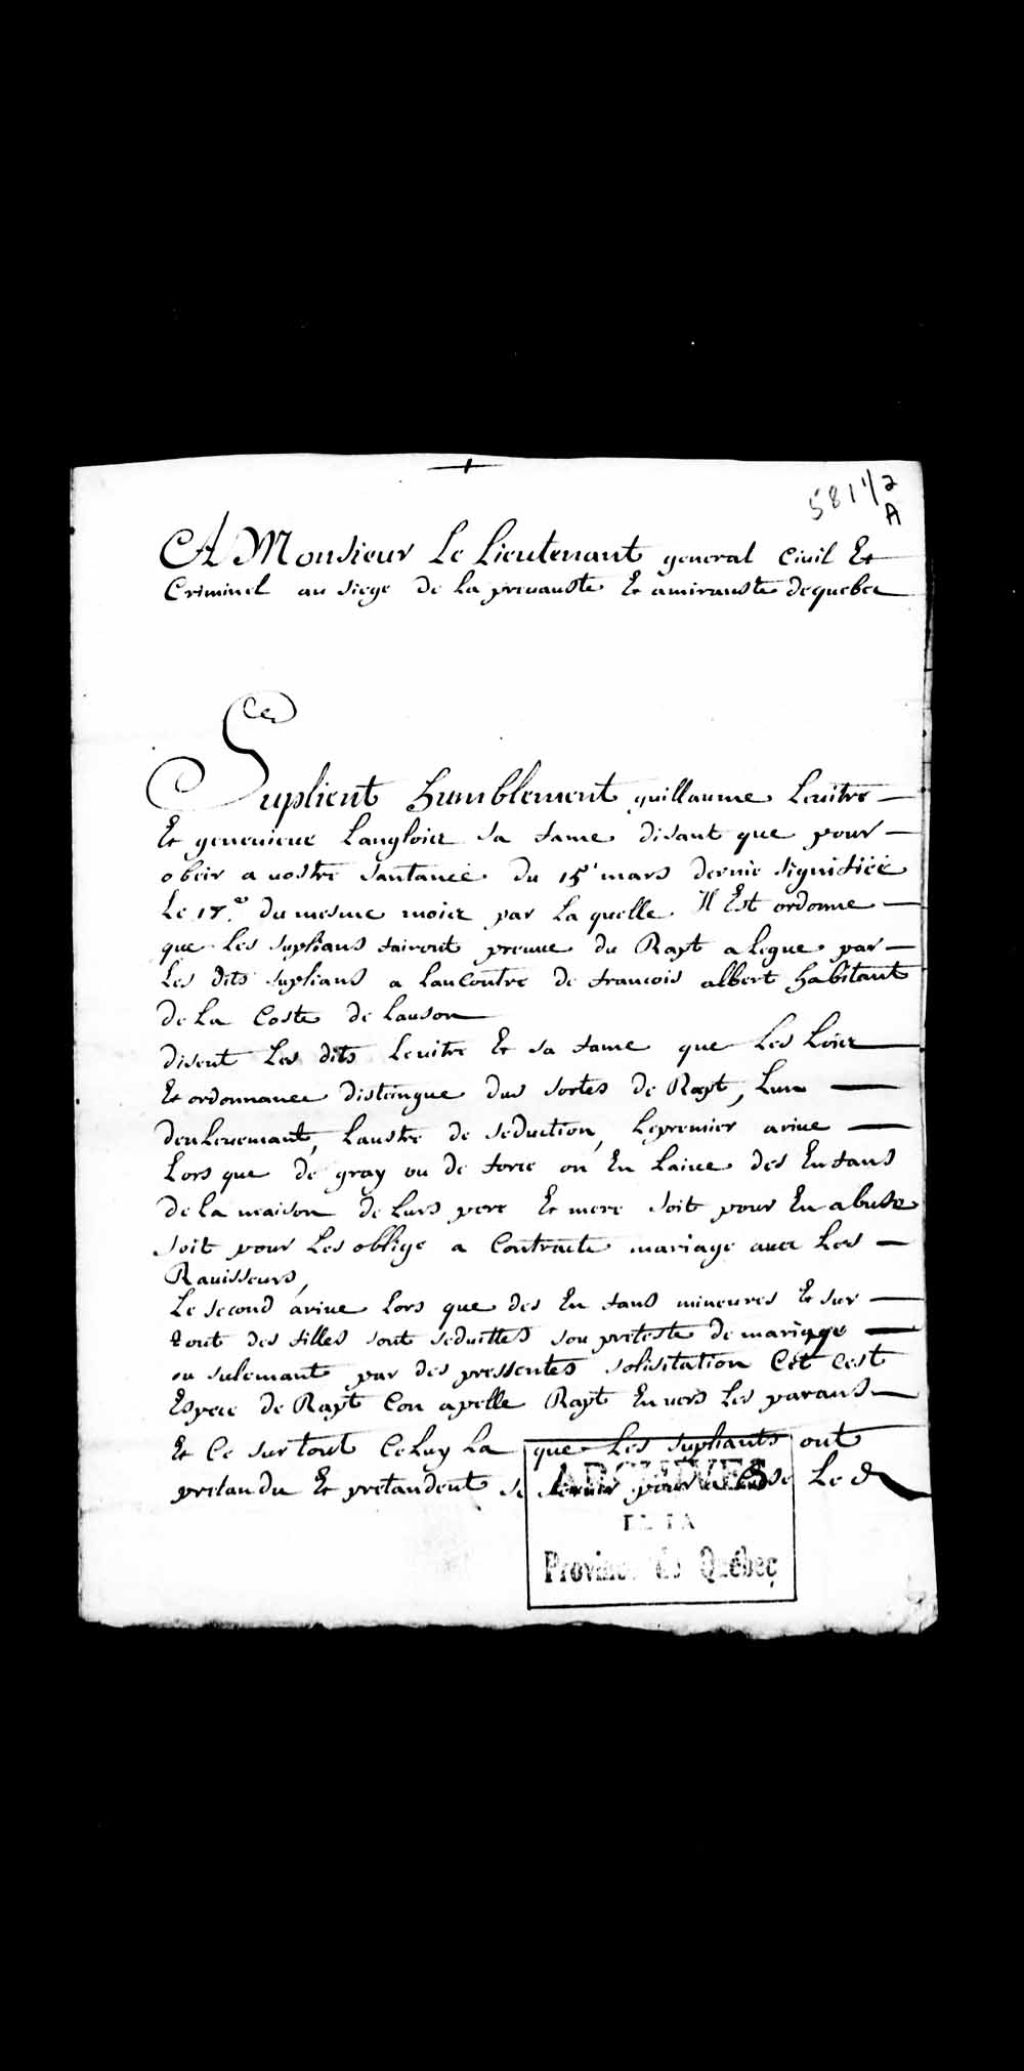 581 1/2
A
A Monsieur Le Lieutenant general Ciuil Et
Criminel au siege de la preuauste Et amirauste de quebec
Suplient humblement guillaume Leuitre
Et geneuieue Langloiee sa fame disant que pour
obeir a uostre santance du 15 mars dernie signifiée
Le 17e du mesme moiee par la quelle Il Est ordonne
que les suplians fairont preuue du Rapt a legue par
Les dits suplians a lancontre de francois albert habitant
de La Coste de lauson
disent Les dits Leuitre Et sa fame que Les Loiee
Et ordonnance distingue deus sortes de Rapt, Lun
denleuemant, laustre de seduction, Le premier ariue
Lors que de gray ou de force on En laiue des Enfans
de la maison de lurs pere Et mere soit pour En abuse
soit pour Les oblige a Contracte mariage auec Les
Rauisseurs,
Le second ariue lors que des En fans mineures Et sur
tout des filles sont seduittes sou preteste de mariage
ou sulemant par des pressentes solisitation Cet cest
Espece de Rapt Con apelle Rapt Enuers Les parans
Et Ce sur tout Celuy La que Les supliants ont
pretandu Et pretandent se seruir pour Le d
ARCHIVES
DE LA
Province de Québec